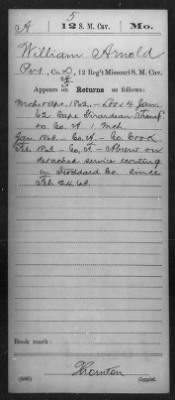 A 5 12 S. M. Cav. Mo.
William Arnold
Pvt., Co. D, 12 Reg't Missouri S. M. Cav.
Appears on Returns as follows:
1862. – Loss 4 Jan.
62 Cape Girardeau Transf.
to Co. A 1 Mch.
Jan. – Co. A. – Co. Cook
Feb. – Co. A – Absent on
detached service scouting
in Stoddard Co. since
Feb. 24, 62.
Book mark:
Thornton
(546) Copyist.